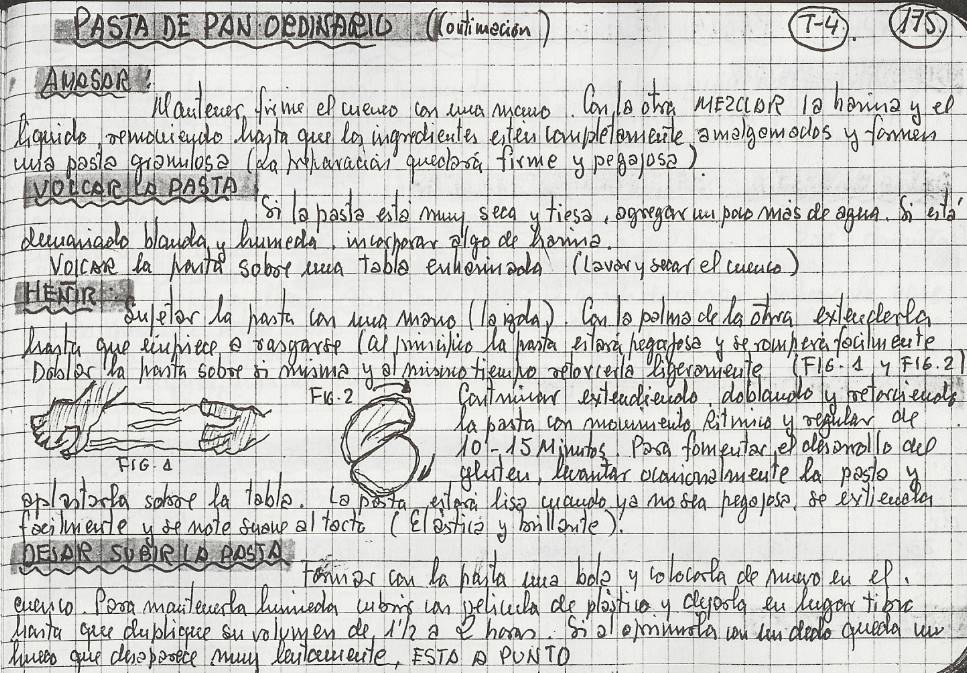 PASTA DE PAN ORDINARIO (Continuación) T-4. 175
AMASAR:
Mantener firme el cuenco con una mano. Con la otra MEZCLAR la harina y el
líquido, removiendo hasta que los ingredientes estén completamente amalgamados y formen
una pasta granulosa (La preparación quedará firme y pegajosa).
VOLCAR LA PASTA
Si la pasta está muy seca y tiesa, agregar un poco más de agua. Si está
demasiado blanda y humeda, incorporar algo de harina.
VOLCAR la pasta sobre una tabla enharinada (lavar y secar el cuenco)
HEÑIR:
Sujetar la pasta con una mano (la izda). Con la palma de la otra extenderla
hasta que empiece a rasgarse (al principio la pasta estará pegajosa y se romperá facilmente
Doblar la pasta sobre si misma y al mismo tiempo retorcerla ligeramente (FIG. 1 y FIG. 2)
FIG. 2
Continuar extendiendo, doblando y retorciendo
la pasta con movimiento Ritmico y regular de
10-15 Minutos. Para fomentar el desarrollo del
FIG. 1
gluten, levantar ocasionalmente la pasta y
aplastarla sobre la tabla. La pasta estará lisa cuando ya no sea pegajosa, se extienda
facilmente y se note suave al tacto (Elástica y brillante).
DEJAR SUBIR LA PASTA
Formar con la pasta una bola y colocarla de nuevo en el.
cuenco. Para mantenerla humeda cubrir con pelicula de plástico y dejarla en lugar tibio
hasta que duplique su volumen de 1 1/2 a 2 horas. Si al oprimirla con un dedo queda un
hueco que desaparece muy lentamente, ESTA A PUNTO